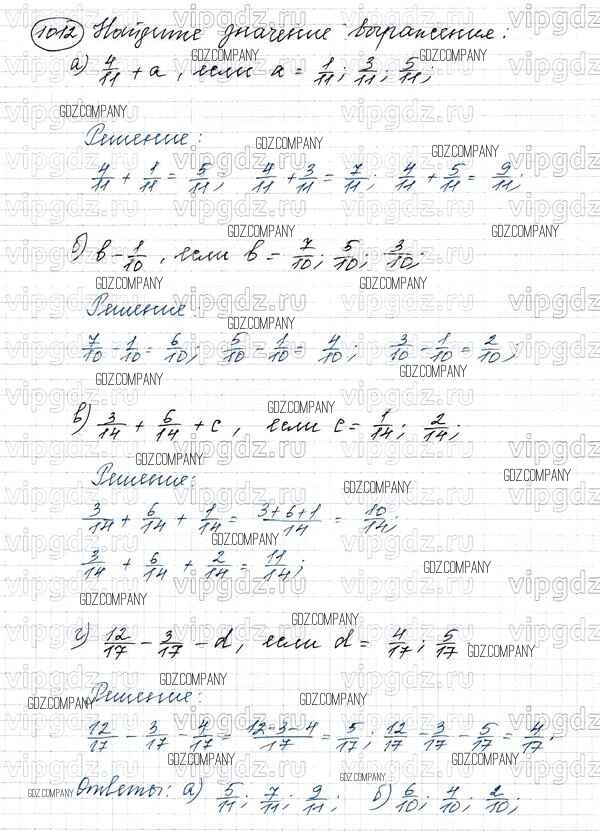 1012 Найдите значение выражения:
а) 4/11 + a, если a = 1/11; 3/11; 5/11;
Решение:
4/11 + 1/11 = 5/11; 4/11 + 3/11 = 7/11; 4/11 + 5/11 = 9/11;
б) в - 1/10, если в = 7/10; 5/10; 3/10;
Решение:
7/10 - 1/10 = 6/10; 5/10 - 1/10 = 4/10; 3/10 - 1/10 = 2/10;
в) 3/14 + 6/14 + c, если c = 1/14; 2/14;
Решение:
3/14 + 6/14 + 1/14 = 3+6+1/14 = 10/14;
3/14 + 6/14 + 2/14 = 11/14;
г) 12/17 - 3/17 - d, если d = 4/17; 5/17.
Решение:
12/17 - 3/17 - 4/17 = 12-3-4/17 = 5/17; 12/17 - 3/17 - 5/17 = 4/17.
Ответы: а) 5/11; 7/11; 9/11; б) 6/10; 4/10; 2/10;
vipgdz.ru
GDZ.COMPANY